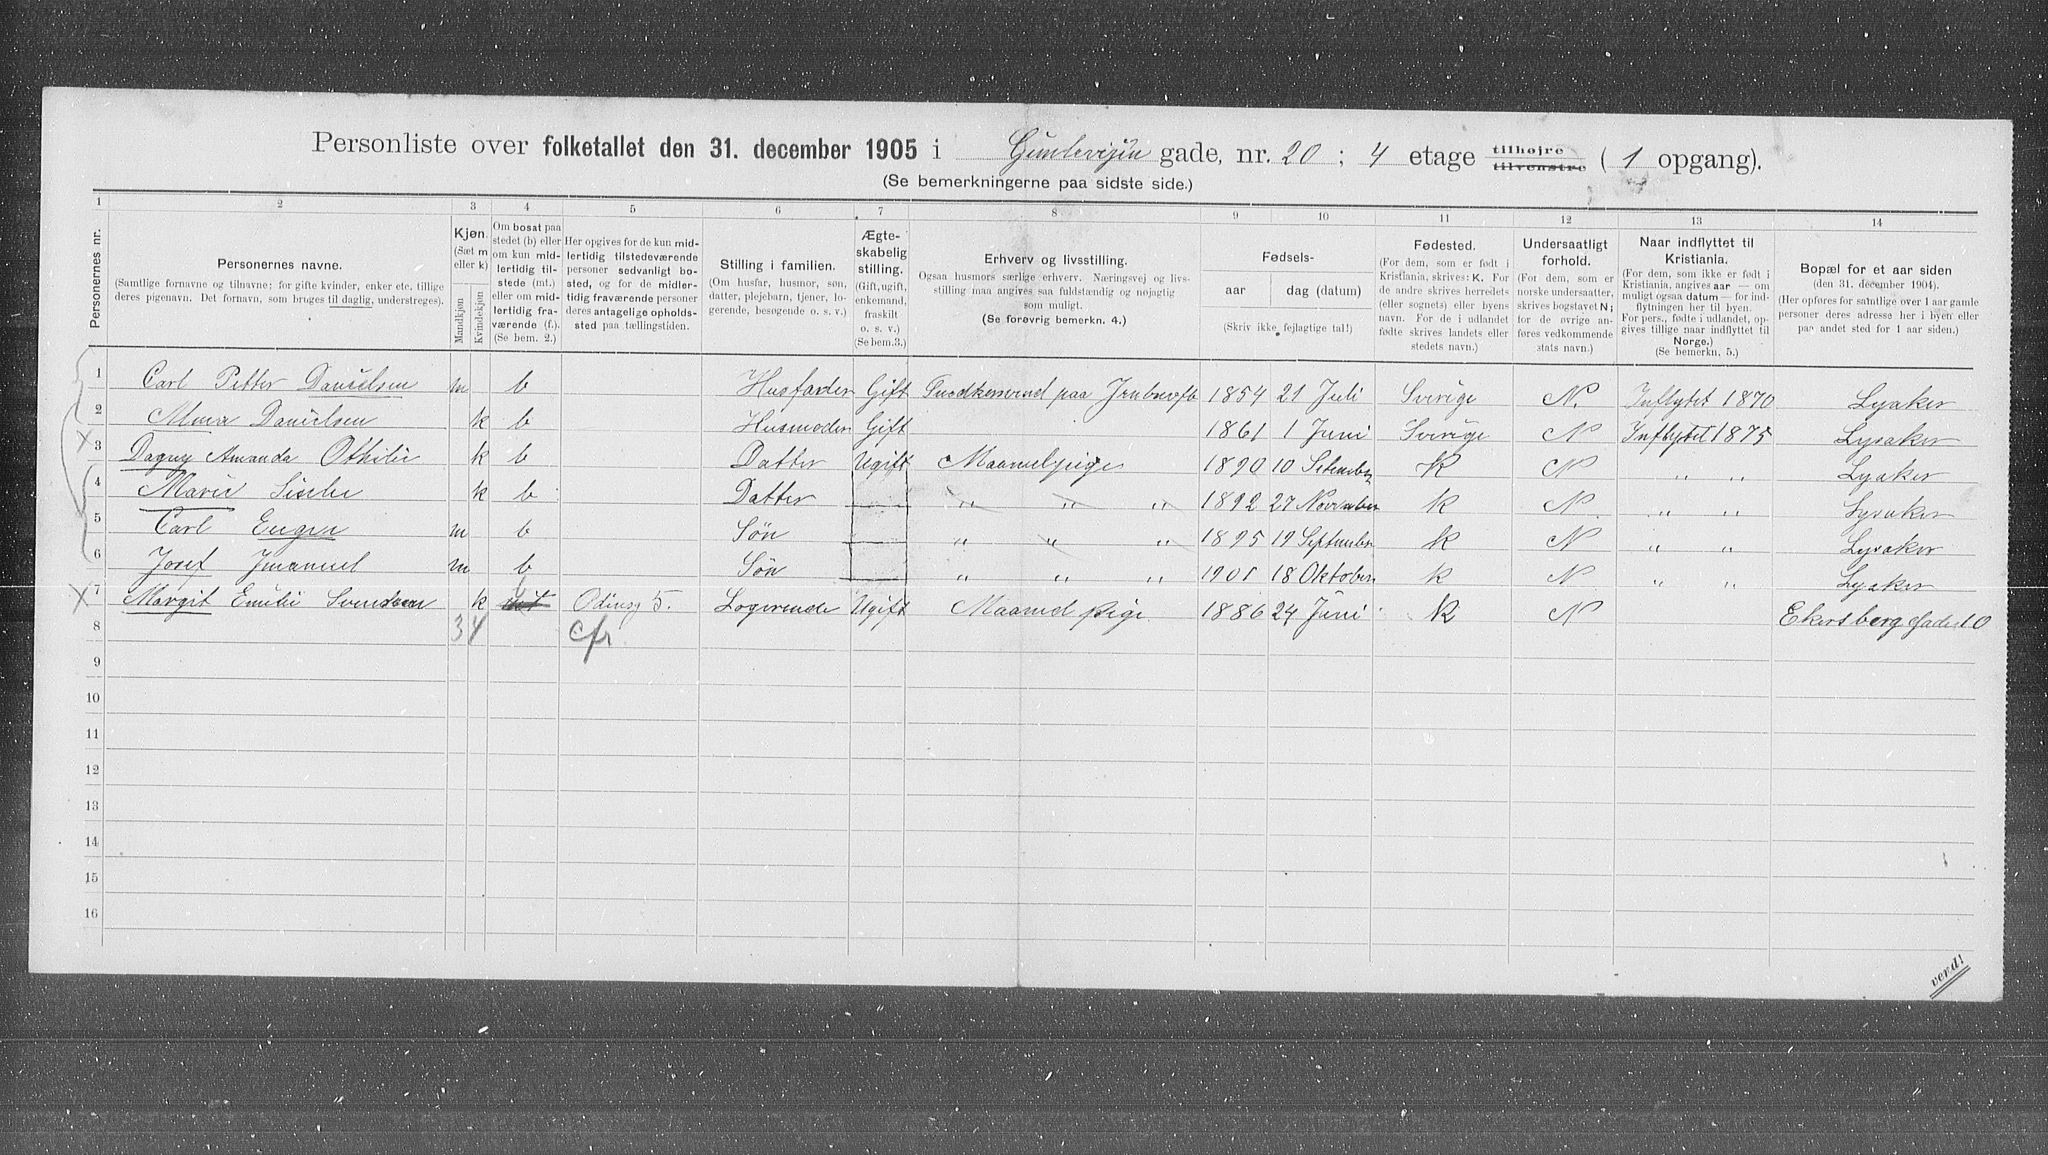 Personliste over folketallet den 31. december 1905 i gade, nr. 20 ; 4 etage tilhøjre tilvenstre ( 1 opgang).
(Se bemerkningerne paa sidste side.)
1 2 3 4 5 6 7 8 9 10 11 12 13 14
Personernes nr.
Personernes navne.
(Samtlige fornavne og tilnavne; for gifte kvinder, enker etc. tillige deres pigenavn. Det fornavn, som bruges til daglig, understreges).
Kjøn.
(Sæt m eller k)
Mandkjøn
Kvindekjøn
Om bosat paa stedet (b) eller om kun midlertidig tilstede (mt.) eller om midlertidig fraværende (f.). (Se bem. 2.)
Her opgives for de kun midlertidig tilstedeværende personer sedvanligt bosted, og for de midlertidig fraværende personer deres antagelige opholdssted paa tællingstiden.
Stilling i familien.
(Om husfar, husmor, søn, datter, plejebarn, tjener, logerende, besøgende o. s. v.)
Ægteskabelig stilling.
(Gift, ugift, enkemand, fraskilt o. s. v.)
(Se bem. 3.)
Erhverv og livsstilling.
Ogsaa husmors særlige erhverv. Næringsvej og livsstilling maa angives saa fuldstændig og nøjagtig som muligt.
(Se forøvrig bemerkn. 4.)
Fødsels-
aar
dag (datum)
(Skriv ikke fejlagtige tal!)
Fødested.
(For dem, som er født i Kristiania, skrives: K. For de andre skrives herredets (eller sognets) eller byens navn. For de i udlandet fødte skrives landets eller stedets navn.)
Undersaatligt forhold.
(For dem, som er norske undersaatter, skrives bogstavet N; for de øvrige anføres vedkommende stats navn.)
Naar indflyttet til Kristiania.
(For dem, som ikke er født i Kristiania, angives aar — om muligt ogsaa datum — for indflytningen her til byen. For pers., fødte i udlandet, opgives tillige naar indflyttet til Norge.)
(Se bemerkn. 5.)
Bopæl for et aar siden
(den 31. december 1904).
(Her opføres for samtlige over 1 aar gamle personer deres adresse her i byen eller paa andet sted for 1 aar siden.)
1 Carl Petter Danielsen m b Husfader Gift 1854 21 Juli Sverige N. Inflytet 1870 Lysaker
2 Danielsen k b Husmoder Gift 1861 1 Juni Sverige N Inflytet 1875 Lysaker
3 Dagny Amanda Othilie k b Datter Ugift 1890 10 K N " " Lysaker
4 Marie k b Datter " " " 1892 27 November K N. " " Lysaker
5 Carl Eugen m b Søn " " " 1895 19 September K N " " Lysaker
6 Josef Imanuel m b Søn " " " 1901 18 Oktober K N " " Lysaker
7 Margit Emilie Svendsen k Logerende Ugift 1886 24 Juni K N 10
8 3 4 cfr
9
10
11
12
13
14
15
16
vend!